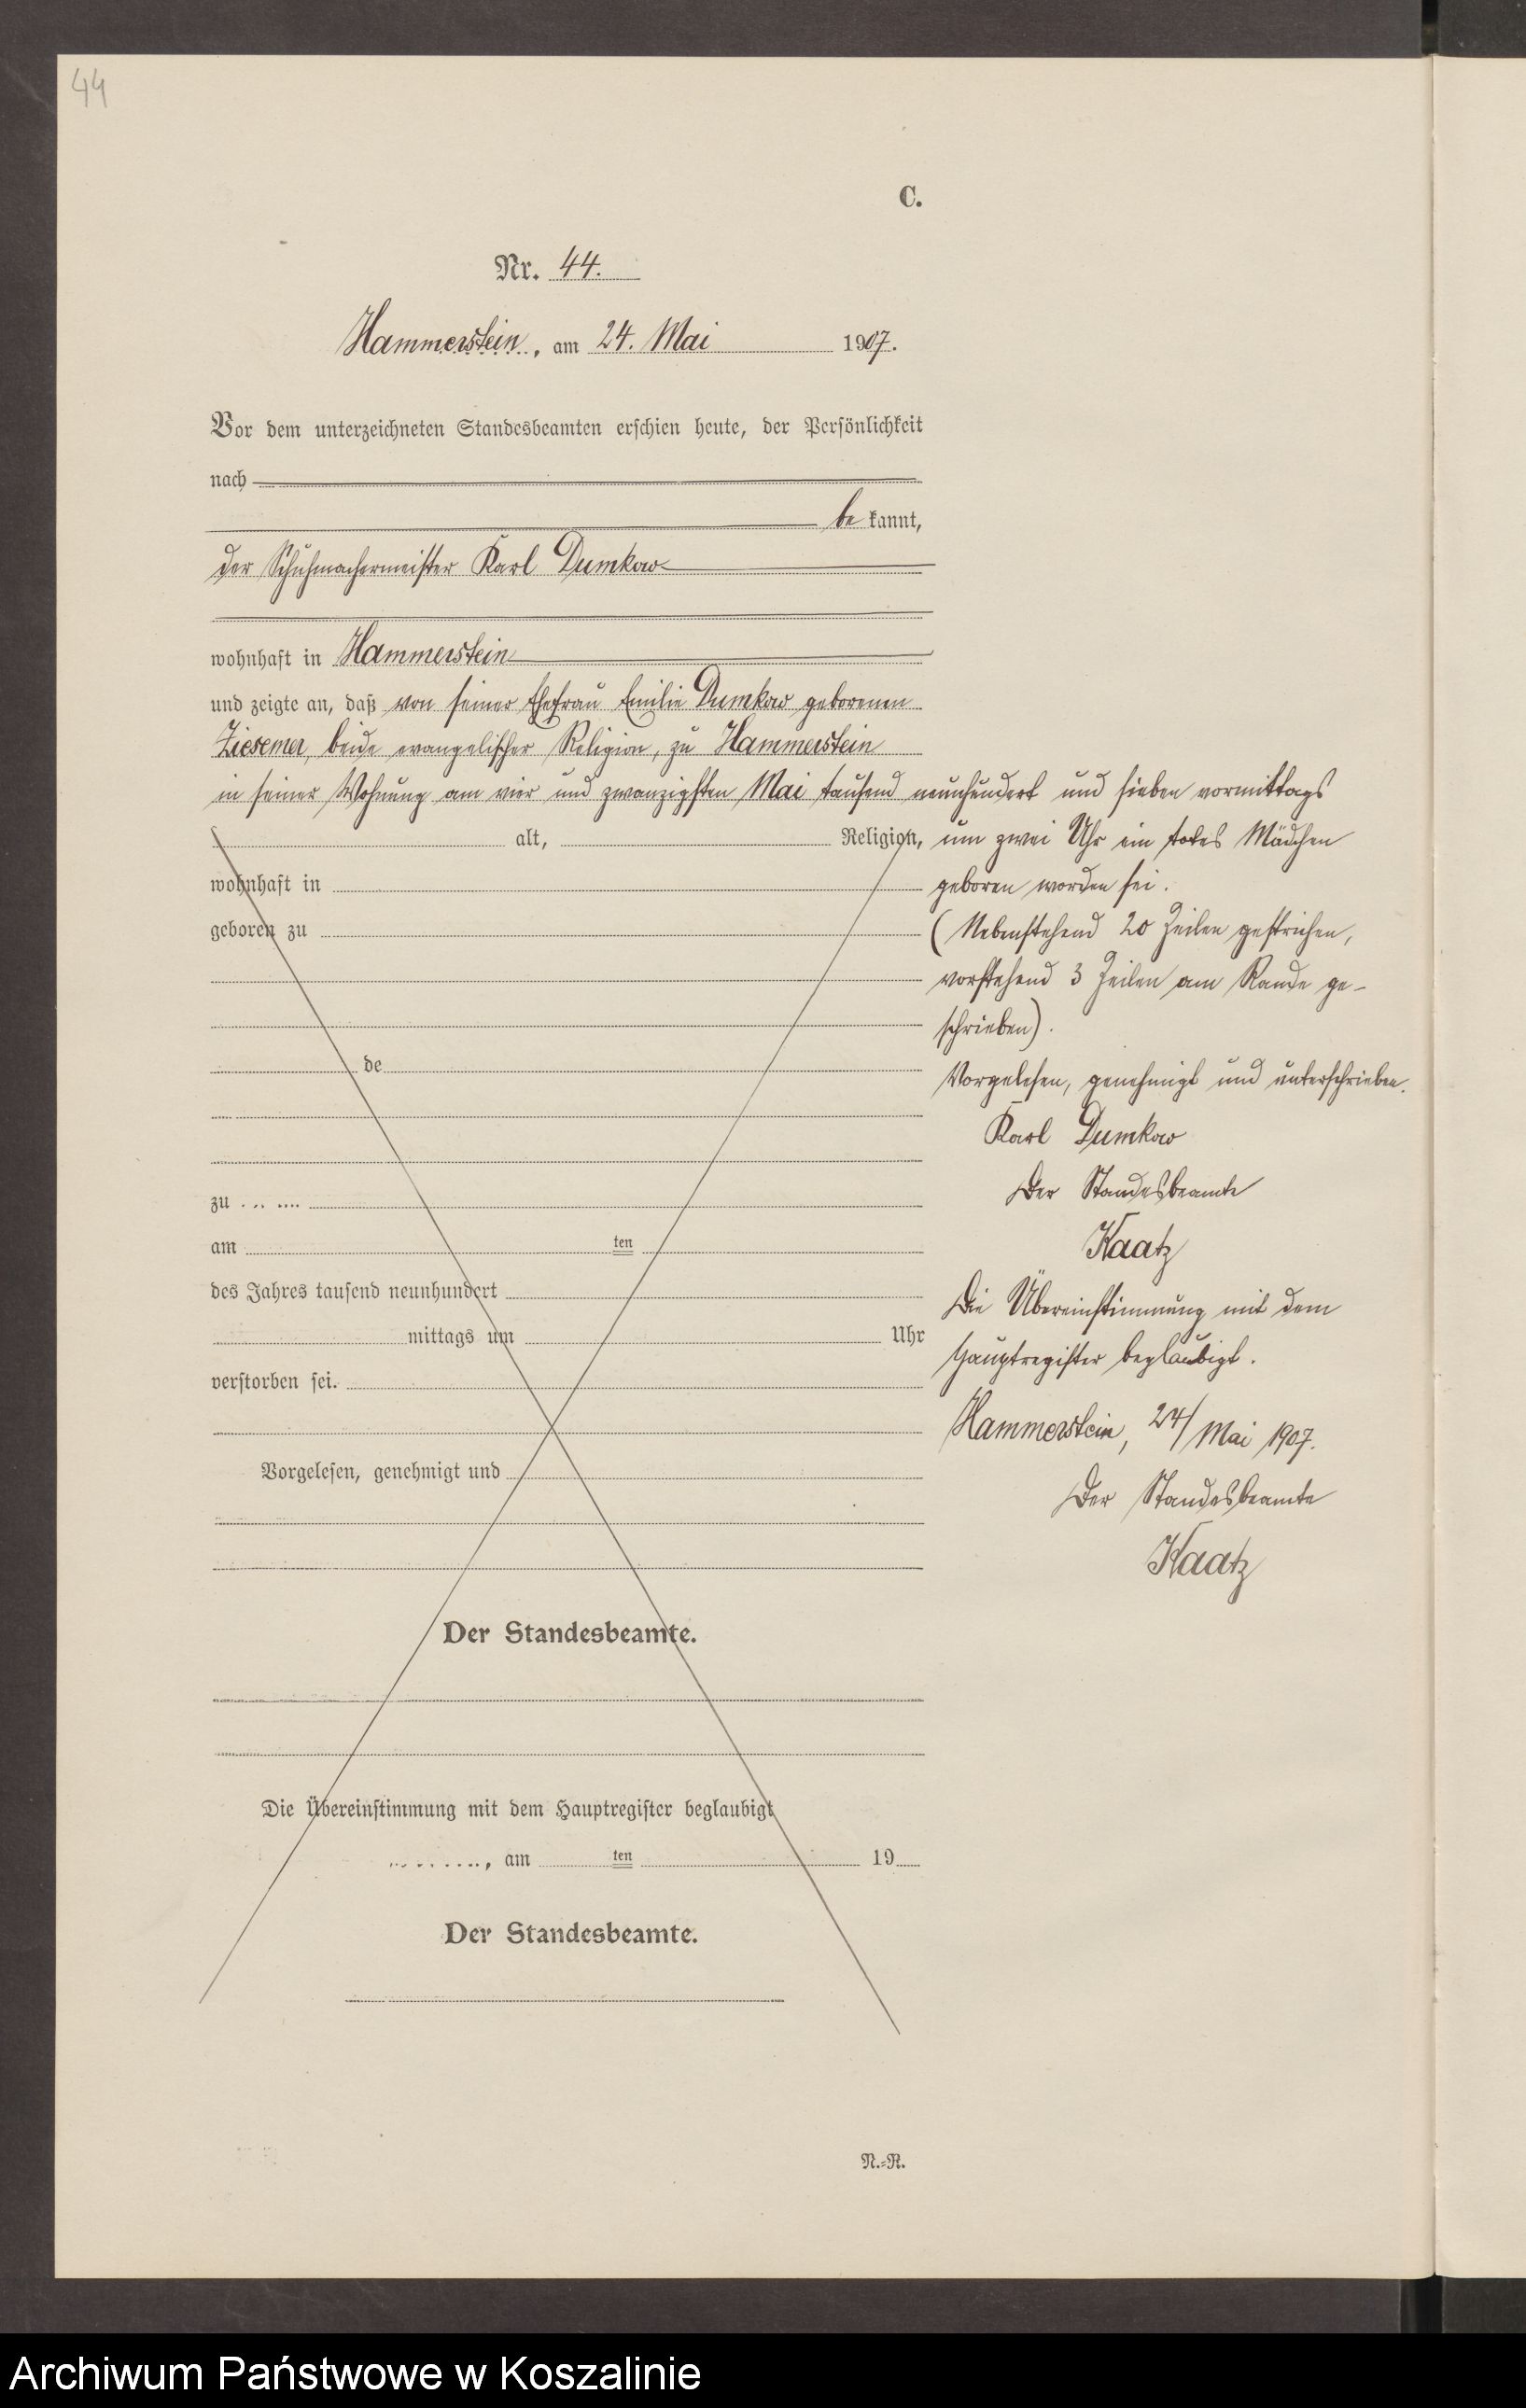 44
C.
Nr. 44.
Hammerstein, am 24. Mai 1907.
Vor dem unterzeichneten Standesbeamten erschien heute, der Persönlichkeit
nach
be kannt,
der Schuhmachermeister Karl Dumkow
wohnhaft in Hammerstein
und zeigte an, daß von seiner Ehefrau Emilie Dumkow geborenen
Ziesemer, beide evangelischer Religion, zu Hammerstein
in seiner Wohnung am vier und zwanzigsten Mai tausend neunhundert und sieben vormittags
alt, Religion,
wohnhaft in
geboren zu
de
zu
am ten
des Jahres tausend neunhundert
mittags um Uhr
verstorben sei.
Vorgelesen, genehmigt und
Der Standesbeamte.
Die Übereinstimmung mit dem Hauptregister beglaubigt
, am ten 19
Der Standesbeamte.
N.-R.
um zwei Uhr ein totes Mädchen
geboren worden sei.
(Nebenstehend 20 Zeilen gestrichen,
vorstehend 3 Zeilen am Rande ge-
schrieben).
Vorgelesen, genehmigt und unterschrieben.
Karl Dumkow
Der Standesbeamte
Kaatz
Die Übereinstimmung mit dem
Hauptregister beglaubigt.
Hammerstein, 24/ Mai 1907.
Der Standesbeamte
Kaatz
Archiwum Państwowe w Koszalinie